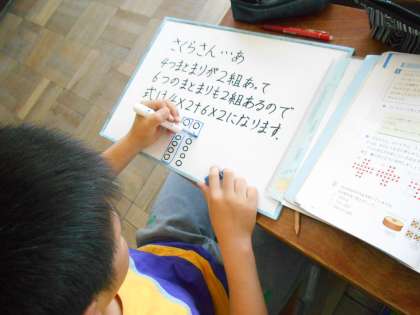 さくらさん…あ
4つまとまりが2組あって
6つのまとまりも2組あるので
式は4×2+6×2になります。